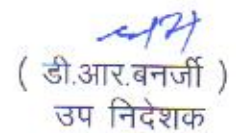 ( डी.आर.बनर्जी )
उप निदेशक